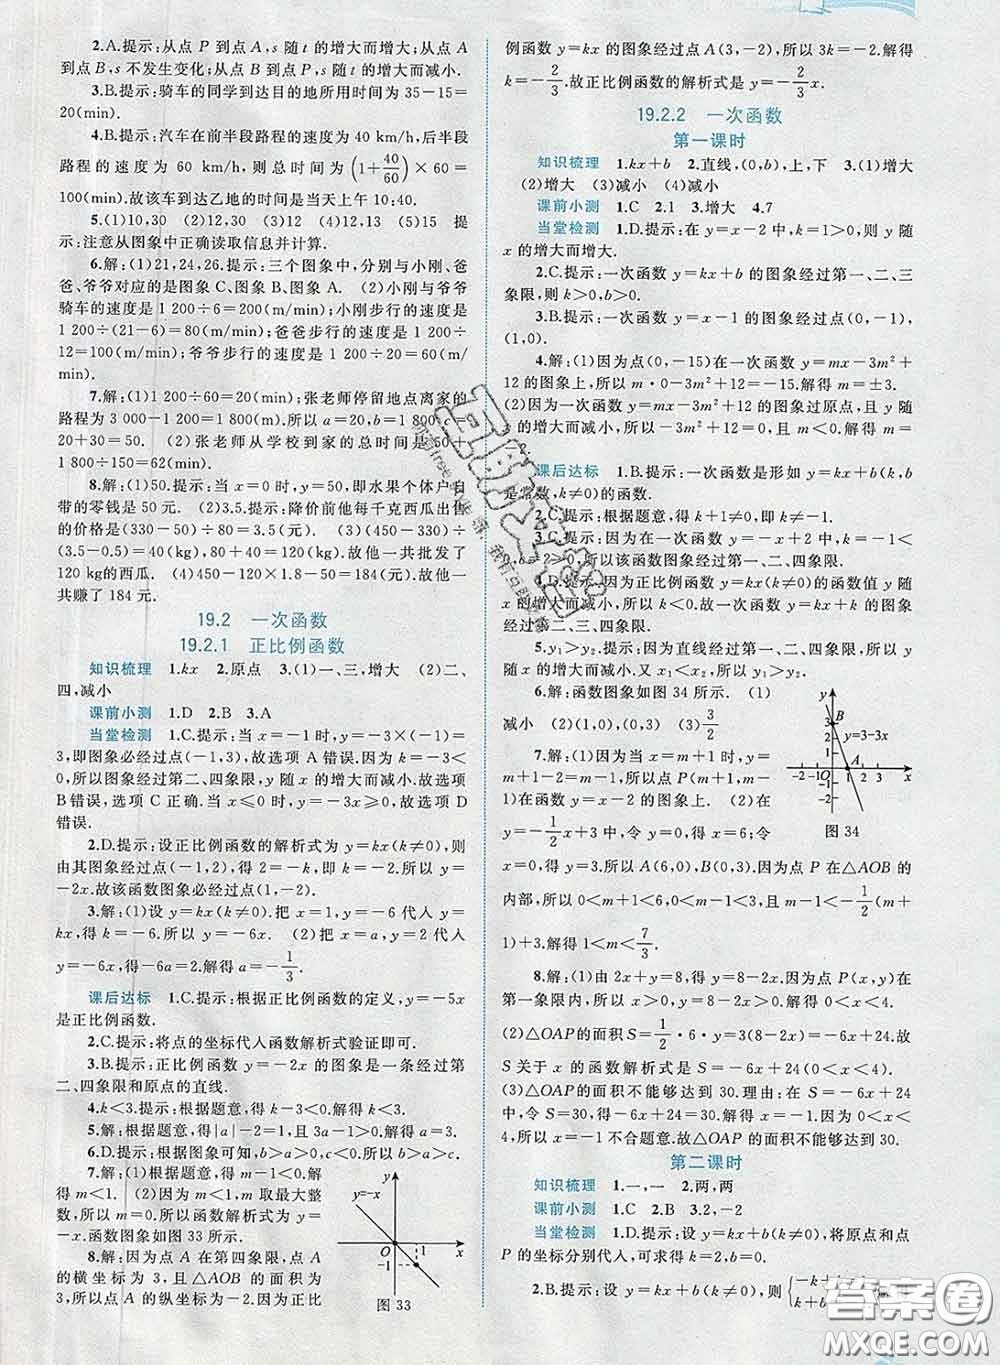 2.A.提示:从点 P 到点 A,s 随 t 的增大而增大;从点 A
到点 B,s 不发生变化;从点 B 到点 P,s 随 t 的增大而减小.
3.B.提示:骑车的同学到达目的地所用时间为 35-15=
20(min).
4.B.提示:汽车在前半段路程的速度为 40 km/h,后半段
路程的速度为 60 km/h,则总时间为(1+40/60)×60=
100(min).故该车到达乙地的时间是当天上午 10:40.
5.(1)10,30 (2)12,30 (3)12 (4)13,12 (5)15 提
示:注意从图象中正确读取信息并计算.
6.解:(1)21,24,26.提示:三个图象中,分别与小刚、爸
爸、爷爷对应的是图象 C、图象 B、图象 A. (2)小刚与爷爷
骑车的速度是 1 200÷6=200(m/min);小刚步行的速度是
1 200÷(21-6)=80(m/min);爸爸步行的速度是 1 200÷
12=100(m/min);爷爷步行的速度是 1 200÷20=60(m/
min).
7.解:(1)1 200÷60=20(min);张老师停留地点离家的
路程为 3 000-1 200=1 800(m).所以 a=20,b=1 800÷
20+30=50. (2)张老师从学校到家的总时间是 50+
1 800÷150=62(min).
8.解:(1)50.提示:当 x=0 时,y=50,即水果个体户自
带的零钱是 50 元. (2)3.5.提示:降价前他每千克西瓜出售
的价格是(330-50)÷80=3.5(元). (3)(450-330)÷
(3.5-0.5)=40(kg),80+40=120(kg).故他一共批发了
120 kg的西瓜. (4)450-120×1.8-50=184(元).故他一
共赚了 184 元.
19.2 一次函数
19.2.1 正比例函数
知识梳理 1.kx 2.原点 3.(1)一、三,增大 (2)二、
四,减小
课前小测 1.D 2.B 3.A
当堂检测 1.C.提示:当 x=-1 时,y=-3×(-1)=
3,即图象必经过点(-1,3),故选项 A 错误.因为 k=-3<
0,所以图象经过第二、四象限,y 随 x 的增大而减小.故选项
B 错误,选项 C 正确.当 x≤0 时,y=-3x≥0,故选项 D
错误.
2.D.提示:设正比例函数的解析式为 y=kx(k≠0),则
由其图象经过点(-1,2),得 2=-k,即 k=-2.所以 y=
-2x.故该函数图象必经过点(1,-2).
3.解:(1)设 y=kx(k≠0).把 x=1,y=-6 代人 y=
kx,得 k=-6.所以 y=-6x. (2)把 x=a,y=2 代人
y=-6x,得-6a=2.解得 a=-1/3.
课后达标 1.C.提示:根据正比例函数的定义,y=-5x
是正比例函数.
2.C.提示:将点的坐标代人函数解析式验证即可.
3.B.提示:正比例函数 y=-2x 的图象是一条经过第
二、四象限和原点的直线.
4.k<3.提示:根据题意,得 k-3<0.解得 k<3.
5.解:根据题意,得|a|-2=1,且 3a-1>0.解得 a=3.
6.D.提示:根据图象可知,b>a>0,c<0.所以 b>a>c.
7.解:(1)根据题意,得 m-1<0.解
得 m<1. (2)因为 m<1,m 取最大整
数,所以 m=0.所以函数解析式为 y=
-x.函数图象如图 33 所示.
8.解:因为点 A 在第四象限,点 A
的横坐标为 3,且△AOB 的面积为
3,所以点 A 的纵坐标为-2,因为正比
y=-x
y
O
1
x
-1
图 33
例函数 y=kx 的图象经过点 A(3,-2),所以 3k=-2.解得
k=-2/3.故正比例函数的解析式是 y=-2/3x.
19.2.2 一次函数
第一课时
知识梳理 1.kx+b 2.直线,(0,b),上,下 3.(1)增大
(2)增大 (3)减小 (4)减小
课前小测 1.C 2.1 3.增大 4.7
当堂检测 1.D.提示:在 y=x-2 中,k=1>0,则 y 随
x 的增大而增大.
2.C.提示:一次函数 y=kx+b 的图象经过第一、二、三
象限,则 k>0,b>0.
3.B.提示:一次函数 y=x-1 的图象经过点(0,-1),
(1,0).
4.解:(1)因为点(0,-15)在一次函数 y=mx-3m²+
12 的图象上,所以 m·0-3m²+12=-15.解得 m=±3.
(2)因为一次函数 y=mx-3m²+12 的图象过原点,且 y 随
x 的增大而减小,所以-3m²+12=0,且 m<0.解得 m=
课后达标 1.B.提示:一次函数是形如 y=kx+b(k,b
是常数,k≠0)的函数.
2.C.提示:根据题意,得 k+1≠0,即 k≠-1.
3.C.提示:因为在一次函数 y=-x+2 中,k=-1<
0,b=2>0,所以该函数图象经过第一、二、四象限.
4.D.提示:因为正比例函数 y=kx(k≠0)的函数值 y 随
x 的增大而减小,所以 k<0.所以一次函数 y=x+k 的图象
经过第一、三、四象限.
5.y₁>y₂.提示:因为直线经过第一、二、四象限,所以 y
随 x 的增大而减小.又 x₁<x₂,所以 y₁>y₂.
6.解:函数图象如图 34 所示. (1)
减小 (2)(1,0),(0,3) (3)3/2
7.解:(1)因为当 x=m+1 时,y=
m+1-2=m-1.所以点 P(m+1,m-
1)在函数 y=x-2 的图象上. (2)在
y=-1/2x+3 中,令 y=0,得 x=6;令
x=0,得 y=3.所以 A(6,0),B(0,3).因为点 P 在△AOB 的
内部,所以 0<m+1<6,0<m-1<3,且 m-1<-1/2(m+
1)+3.解得 1<m<7/3.
y
3
B
2
1
y=3-3x
A
-2 -1 O 1 2 3 x
-1
-2
图 34
8.解:(1)由 2x+y=8,得 y=8-2x.因为点 P(x,y)在
第一象限内,所以 x>0,y=8-2x>0.解得 0<x<4.
(2)△OAP的面积 S=1/2·6·y=3(8-2x)=-6x+24.故
S 关于 x 的函数解析式是 S=-6x+24(0<x<4).
(3)△OAP的面积不能够达到 30.理由:在 S=-6x+24
中,令 S=30,得-6x+24=30.解得 x=-1.因为 0<x<4,
所以 x=-1 不合题意.故△OAP 的面积不能够达到 30.
第二课时
知识梳理 1.一,一 2.两,两
课前小测 1.C 2.B 3.2,-2
当堂检测 1.D.提示:设 y=kx+b(k≠0),将原点和点
P 的坐标分别代人,可求得 k=2,b=0.
2.B.提示:设 y=kx+b(k≠0),则
答案圈
MXQE.COM